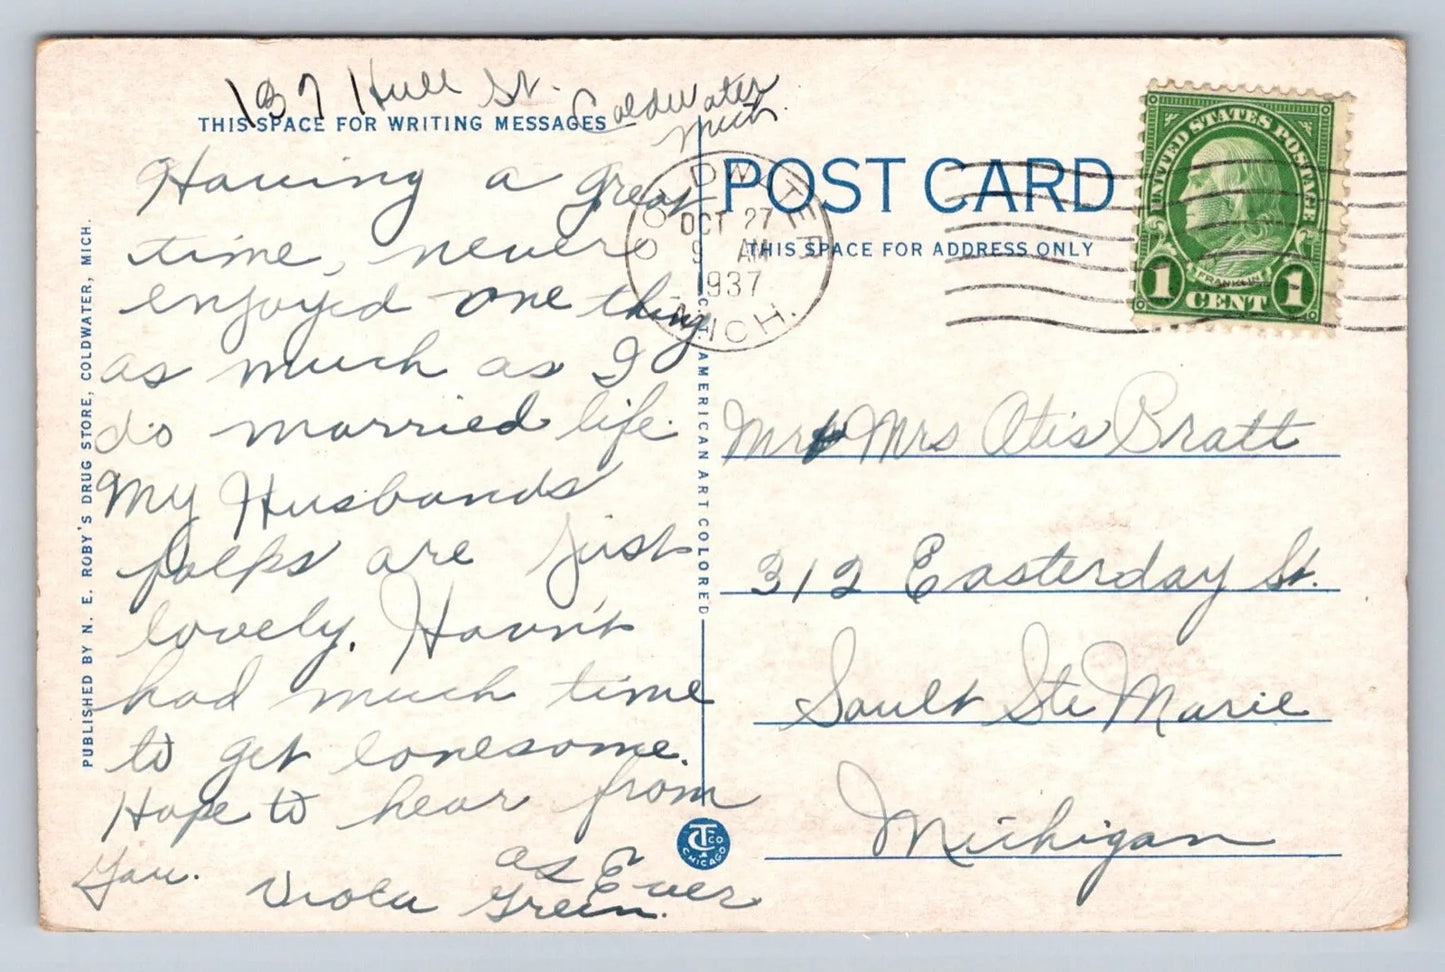 137 Hull St.
Coldwater
Mich.
THIS SPACE FOR WRITING MESSAGES
Having a great
time, never
enjoyed one thing
as much as I
do married life.
My Husbands
folks are just
lovely. Havn't
had much time
to get lonesome.
Hope to hear from
you.
as Ever
Viola Green.
PUBLISHED BY N. E. ROBY'S DRUG STORE, COLDWATER, MICH.
AMERICAN ART COLORED
POST CARD
THIS SPACE FOR ADDRESS ONLY
COLDWATER
OCT 27
9 AM
1937
MICH.
UNITED STATES POSTAGE
FRANKLIN
1 CENT 1
Mr & Mrs Otis Bratt
312 Easterday St.
Sault Ste Marie
Michigan
CTCO
CHICAGO